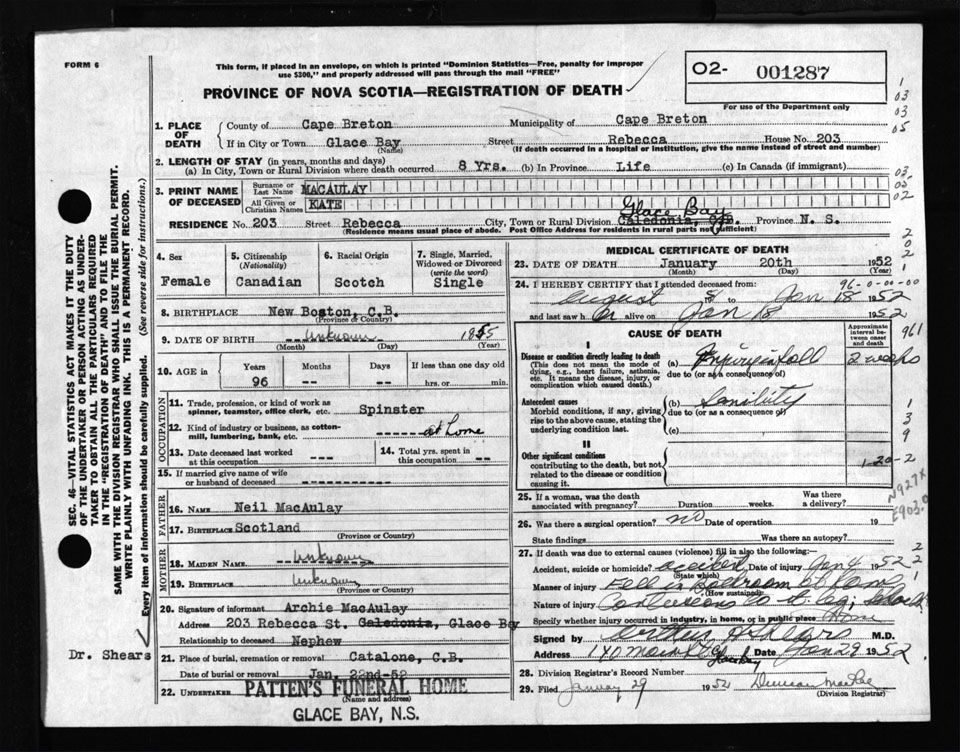 FORM 6
This form, if placed in an envelope, on which is printed "Dominion Statistics—Free, penalty for improper
use $300," and properly addressed will pass through the mail "FREE"
PROVINCE OF NOVA SCOTIA—REGISTRATION OF DEATH
02- 001287
For use of the Department only
1
03
03
05
1. PLACE OF DEATH
County of Cape Breton Municipality of Cape Breton
If in City or Town Glace Bay Street Rebecca House No. 203
(Name) (If death occurred in a hospital or institution, give the name instead of street and number)
2. LENGTH OF STAY (in years, months and days)
(a) In City, Town or Rural Division where death occurred 8 Yrs. (b) In Province Life (c) In Canada (if immigrant)
3. PRINT NAME OF DECEASED
Surname or Last Name MACAULAY
All Given or Christian Names KATE
03
02
RESIDENCE No. 203 Street Rebecca City, Town or Rural Division Glace Bay Caledonia, Province N. S.
(Residence means usual place of abode. Post Office Address for residents in rural parts not sufficient)
SEC. 46—VITAL STATISTICS ACT MAKES IT THE DUTY
OF THE UNDERTAKER OR PERSON ACTING AS UNDER-
TAKER TO OBTAIN ALL THE PARTICULARS REQUIRED
IN THE "REGISTRATION OF DEATH" AND TO FILE THE
SAME WITH THE DIVISION REGISTRAR WHO SHALL ISSUE THE BURIAL PERMIT.
WRITE PLAINLY WITH UNFADING INK. THIS IS A PERMANENT RECORD.
Every item of information should be carefully supplied. (See reverse side for instructions.)
Dr. Shears
4. Sex
Female
5. Citizenship
(Nationality)
Canadian
6. Racial Origin
Scotch
7. Single, Married,
Widowed or Divorced
(write the word)
Single
8. BIRTHPLACE New Boston, C.B.
(Province or Country)
9. DATE OF BIRTH Unknown 1855
(Month) (Day) (Year)
10. AGE in Years 96 Months -- Days -- If less than one day old
hrs. or min.
OCCUPATION
11. Trade, profession, or kind of work as
spinner, teamster, office clerk, etc. Spinster
12. Kind of industry or business, as cotton-
mill, lumbering, bank, etc. at home
13. Date deceased last worked
at this occupation ---
14. Total yrs. spent in
this occupation ---
15. If married give name of wife
or husband of deceased
FATHER
16. NAME Neil MacAulay
17. BIRTHPLACE Scotland
(Province or Country)
MOTHER
18. MAIDEN NAME Unknown
19. BIRTHPLACE Unknown
(Province or Country)
20. Signature of informant Archie MacAulay
Address 203 Rebecca St. Caledonia, Glace Bay
Relationship to deceased Nephew
21. Place of burial, cremation or removal Catalone, C.B.
Date of burial or removal Jan. 22nd-52
22. UNDERTAKER PATTEN'S FUNERAL HOME
(Name and address)
GLACE BAY, N.S.
MEDICAL CERTIFICATE OF DEATH
23. DATE OF DEATH January 20th 1952
(Month) (Day) (Year)
96-0-00-00
24. I HEREBY CERTIFY that I attended deceased from:
August to Jan 18 1952
and last saw her alive on Jan 18 1952
CAUSE OF DEATH
Approximate
interval be-
tween onset
and death
961
I
Disease or condition directly leading to death
(This does not mean the mode of
dying, e.g., heart failure, asthenia,
etc. It means the disease, injury, or
complication which caused death.)
(a) Injury in fall 2 weeks
due to (or as a consequence of)
Antecedent causes
Morbid conditions, if any, giving
rise to the above cause, stating the
underlying condition last.
(b) Senility
due to (or as a consequence of)
(c)
1
3
9
II
Other significant conditions
contributing to the death, but not
related to the disease or condition
causing it.
1-20-2
25. If a woman, was the death
associated with pregnancy? Duration weeks. Was there
a delivery?
N927X
E903.0
26. Was there a surgical operation? no Date of operation 19
State findings Was there an autopsy?
27. If death was due to external causes (violence) fill in also the following:
Accident, suicide or homicide? accident Date of injury Jan 4 1952
(State which)
Manner of injury Fell in bedroom at home
(How sustained)
Nature of injury Contusions to rt. leg;
Specify whether injury occurred in industry, in home, or in public place Home
Signed by Arthur M.D.
Address Date Jan 29 1952
28. Division Registrar's Record Number
29. Filed January 29 1952 Duncan MacRae
(Division Registrar)